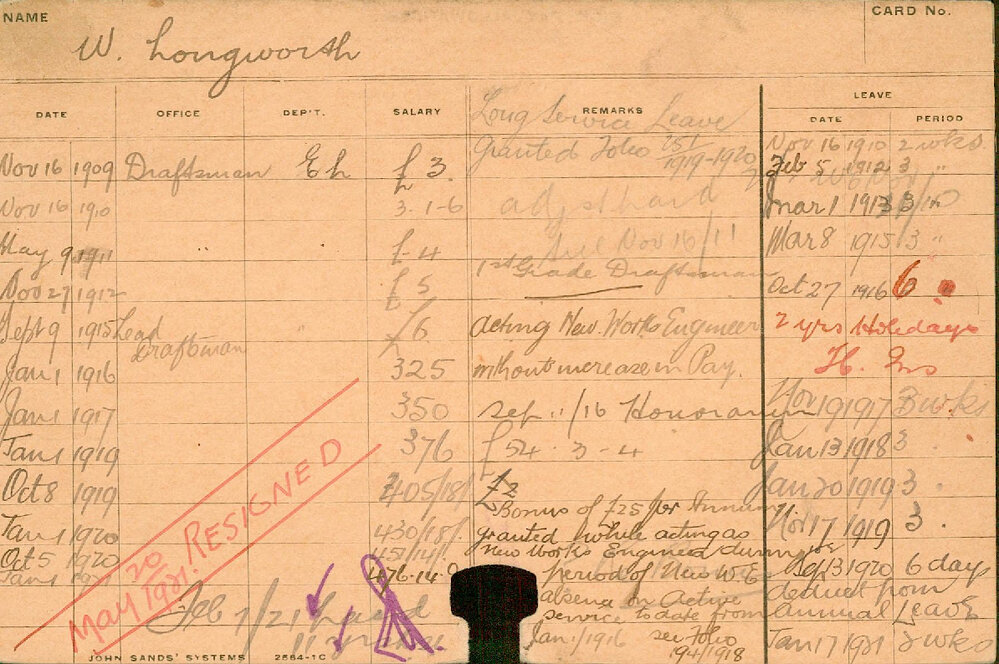 NAME
W. Longworth
CARD No.
DATE OFFICE DEP'T. SALARY REMARKS LEAVE
DATE PERIOD
Long Service Leave
Granted Folio 251/1919-1920
Nov 16 1910 2 wks
Nov 16 1909 Draftsman Eh £3. Feb 5 1912 3 "
Nov 16 1910 3.1-6 Mar 1 1913 3
May 9 1911 " £-4 Nov 16/11 Mar 8 1915 3 "
Nov 27 1912 £5 1st Grade Draftsman Oct 27 1916 6
Sept 9 1915 Lead Draftman £6 Acting New Works Engineer 2 yrs Holidays
Jan 1 1916 325 without increase in Pay.
Jan 1 1917 350 Sep 11/16 Honorarium Nov 1917 3 wks
Jan 1 1919 376 £54-3-4 Jan 13 1918 3
Oct 8 1919 405/18/ £2 Jan 20 1919 3.
Bonus of £25 per Annum
Jan 1 1920 430/18/. granted while acting as Nov 17 1919 3.
Oct 5 1920 451/14/. New Works Engineer during
Jan 1 476-14-0 period of New W E Sep 13 1920 6 days
absence on Active deduct from
service to date from annual Leave
Jan 1/1916 see folio 194/1918 Jan 17 1921 2 wks
RESIGNED
May 20/1921.
Feb 7/21
JOHN SANDS' SYSTEMS 2584-1C